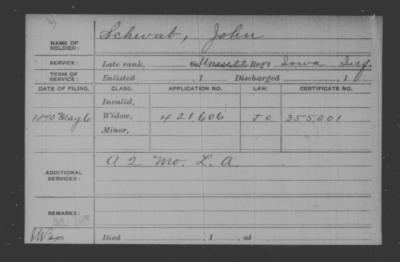 NAME OF SOLDIER: Schwab, John
SERVICE: Late rank, 22 Reg't Iowa Inf.
TERM OF SERVICE: Enlisted , 1 Discharged , 1
DATE OF FILING. CLASS. APPLICATION NO. LAW. CERTIFICATE NO.
Invalid,
May 6 Widow, 421606 355,001
Minor,
ADDITIONAL SERVICES: A 2 Mo. L. A.
REMARKS:
Died , 1 , at